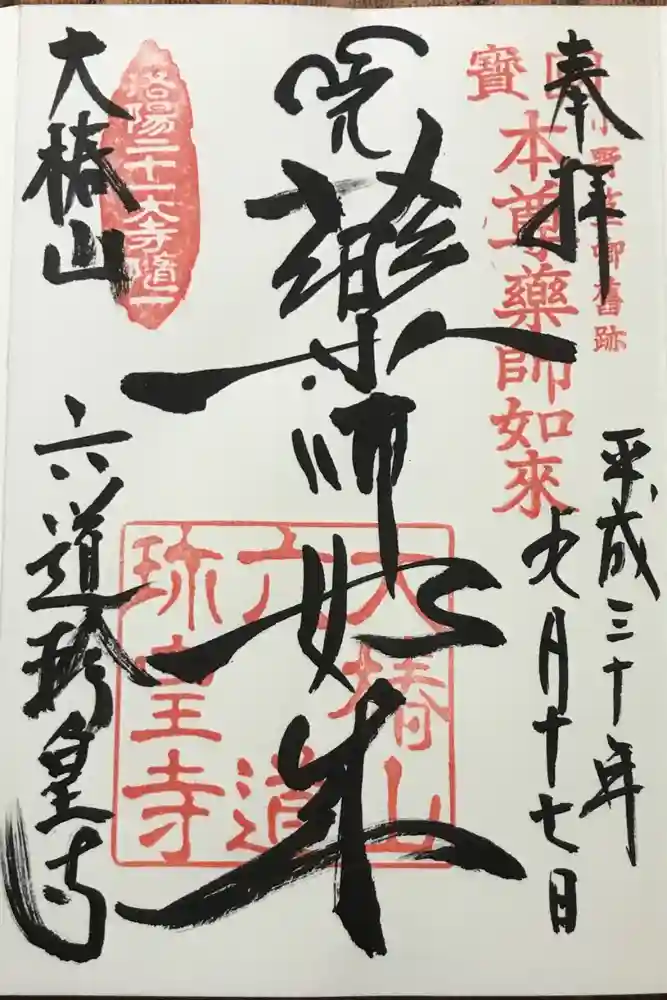 奉拝
平成三十年
九月十七日
小野篁卿舊跡
國寶
本尊藥師如來
薬師如来
大椿山
六道
珎皇寺
洛陽二十一大寺随一
大椿山
六道珎皇寺